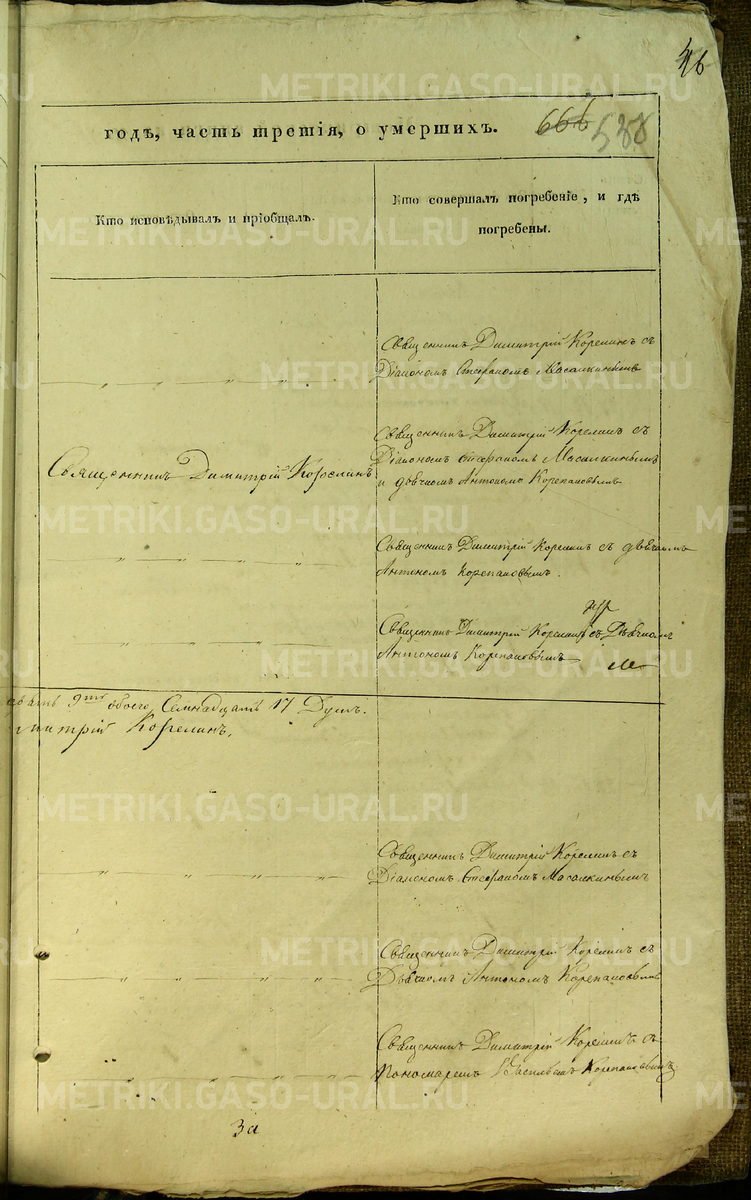 46
годъ, часть третія, о умершихъ.
666 588
Кто исповѣдывалъ и пріобщалъ.
Кто совершалъ погребеніе, и гдѣ
погребены.
Священникъ Димитрій Корелинъ съ
Діакономъ Стефаномъ Масалкинымъ
Священникъ Димитрій Корелинъ
Священникъ Димитрій Корелинъ съ
Діакономъ Стефаномъ Масалкинымъ
и дьячкомъ Антономъ Корепановымъ
Священникъ Димитрій Корелинъ съ дьячкомъ
Антономъ Корепановымъ.
Священникъ Димитрій Корелинъ съ Дьячкомъ
Антономъ Корепановымъ
9ть обоего Семнадцать 17 Душъ.
митрій Корелинъ,
Священникъ Димитрій Корелинъ съ
Діакономъ Стефаномъ Масалкинымъ
Священникъ Димитрій Корелинъ съ
Дьячкомъ Антономъ Корепановымъ
Священникъ Димитрій Корелинъ съ
Пономаремъ Васильемъ Корепановымъ
За
METRIKI.GASO-URAL.RU